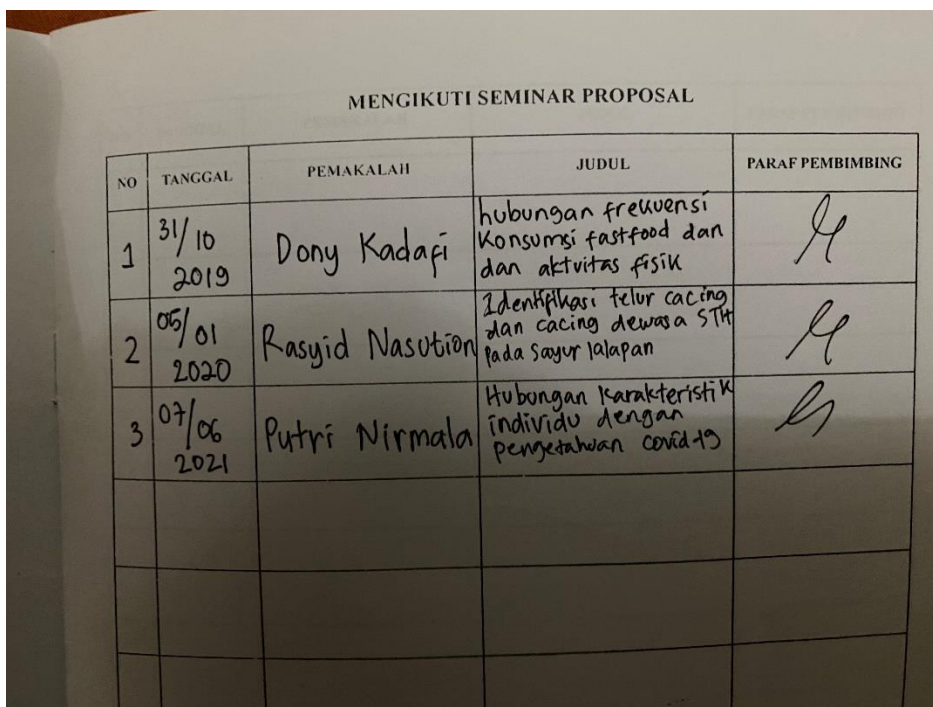 MENGIKUTI SEMINAR PROPOSAL
NO TANGGAL PEMAKALAH JUDUL PARAF PEMBIMBING
1
31/10
2019
Dony Kadafi
hubungan frekuensi
Konsumsi fastfood dan
dan aktvitas fisik
2
05/01
2020
Rasyid Nasution
Identifikasi telur cacing
dan cacing dewasa STH
pada Sayur lalapan
3
07/06
2021
Putri Nirmala
Hubungan Karakteristik
individu dengan
pengetahuan covid-19